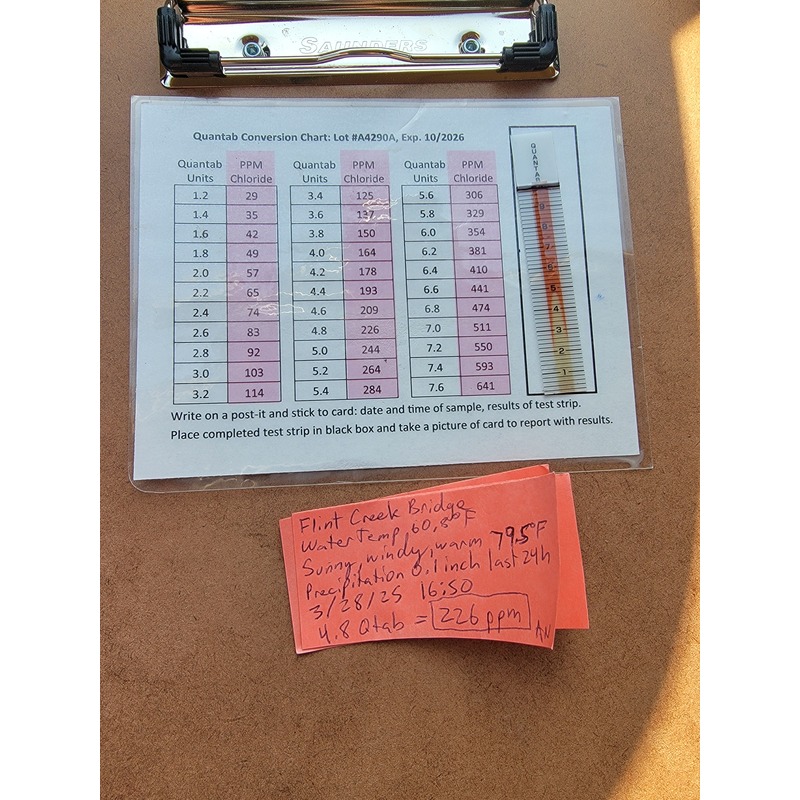 SAUNDERS
Quantab Conversion Chart: Lot #A4290A, Exp. 10/2026
Quantab Units PPM Chloride Quantab Units PPM Chloride Quantab Units PPM Chloride
1.2 29 3.4 125 5.6 306
1.4 35 3.6 137 5.8 329
1.6 42 3.8 150 6.0 354
1.8 49 4.0 164 6.2 381
2.0 57 4.2 178 6.4 410
2.2 65 4.4 193 6.6 441
2.4 74 4.6 209 6.8 474
2.6 83 4.8 226 7.0 511
2.8 92 5.0 244 7.2 550
3.0 103 5.2 264 7.4 593
3.2 114 5.4 284 7.6 641
QUANTAB
9
8
7
6
5
4
3
2
1
Write on a post-it and stick to card: date and time of sample, results of test strip.
Place completed test strip in black box and take a picture of card to report with results.
Flint Creek Bridge
Water Temp, 60,8°F
Sunny, windy, warm 79.5°F
Precipitation 0.1 inch last 24h
3/28/25 16:50
4.8 Qtab = 226 ppm AN